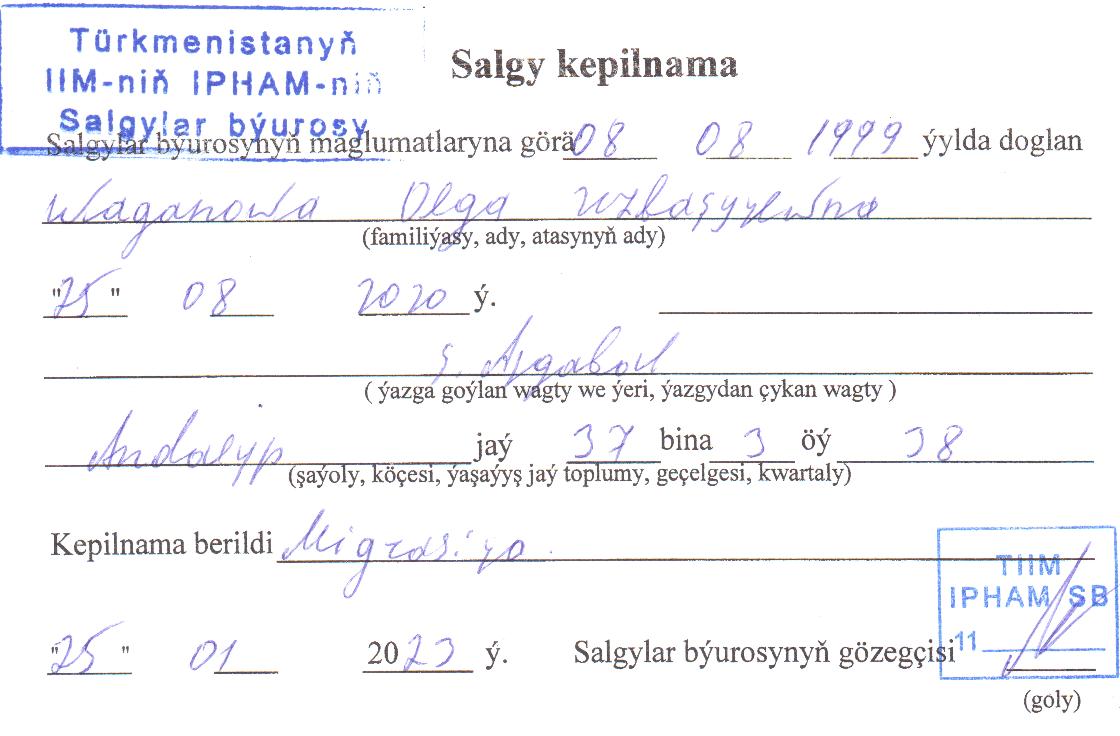 Türkmenistanyň
IIM-niň IPHAM-niň
Salgylar býurosy
Salgy kepilnama
Salgylar býurosynyň maglumatlaryna görä 08 08 1999 ýylda doglan
Waganowa Olga Uzbaşyýewna
(familiýasy, ady, atasynyň ady)
"25" 08 2020 ý.
ş. Aşgabat
( ýazga goýlan wagty we ýeri, ýazgydan çykan wagty )
Andalyp jaý 37 bina 3 öý 38
(şaýoly, köçesi, ýaşaýyş jaý toplumy, geçelgesi, kwartaly)
Kepilnama berildi Migrasiýa
"25" 01 2023 ý. Salgylar býurosynyň gözegçisi
TIIM
IPHAM SB
11
(goly)